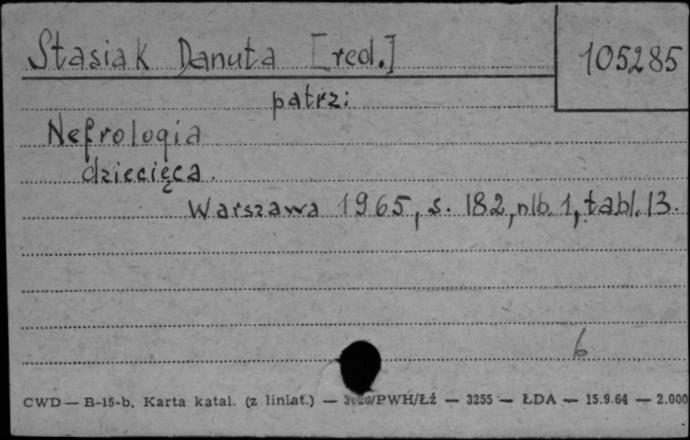 Stasiak Danuta [red.]
105285
patrz:
Nefrologia
dziecięca.
Warszawa 1965, s. 182, nlb. 1, tabl. 13.
6
CWD — B-15-b, Karta katal. (z liniat.) — /PWH/Łź — 3255 — ŁDA — 15.9.64 — 2.000